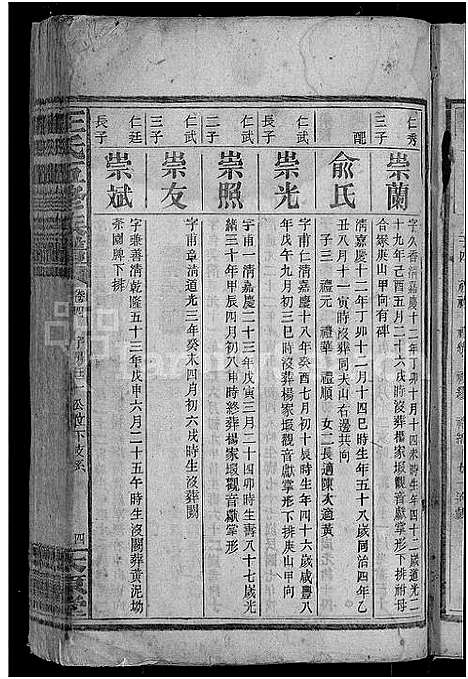 仁秀
三子
崇蘭
字久香清嘉慶十二年丁卯十月十四未時生年四十二歲道光二
十九年己酉五月二十六戌時沒葬楊家堰觀音獻掌形下排祔母
合冢庚山甲向有碑
配
俞氏
清嘉慶十二年丁卯十二月十四巳時生年五十八歲同治四年乙
丑八月十一寅時沒葬同夫山右邊共向
子三 禮元 禮華 禮順 女二長適陳次適黃
仁武
長子
崇光
字甫仁清嘉慶十八年癸酉七月初十辰時生年四十六歲咸豐八
年戊午九月初三巳時沒葬楊家堰觀音獻掌形下排庚山甲向
仁武
二子
崇照
字甫一清嘉慶二十三年戊寅三月二十四卯時生壽八十七歲光
緒三十年甲辰四月初八申時終葬楊家堰觀音獻掌形
仁武
三子
崇友
字甫章清道光三年癸未四月初六戌時生沒葬闕
仁廷
長子
崇斌
字乘善清乾隆五十三年戊申六月二十五午時生沒闕葬黃泥坳
茶園牌下排
卷四
公放下支系
四